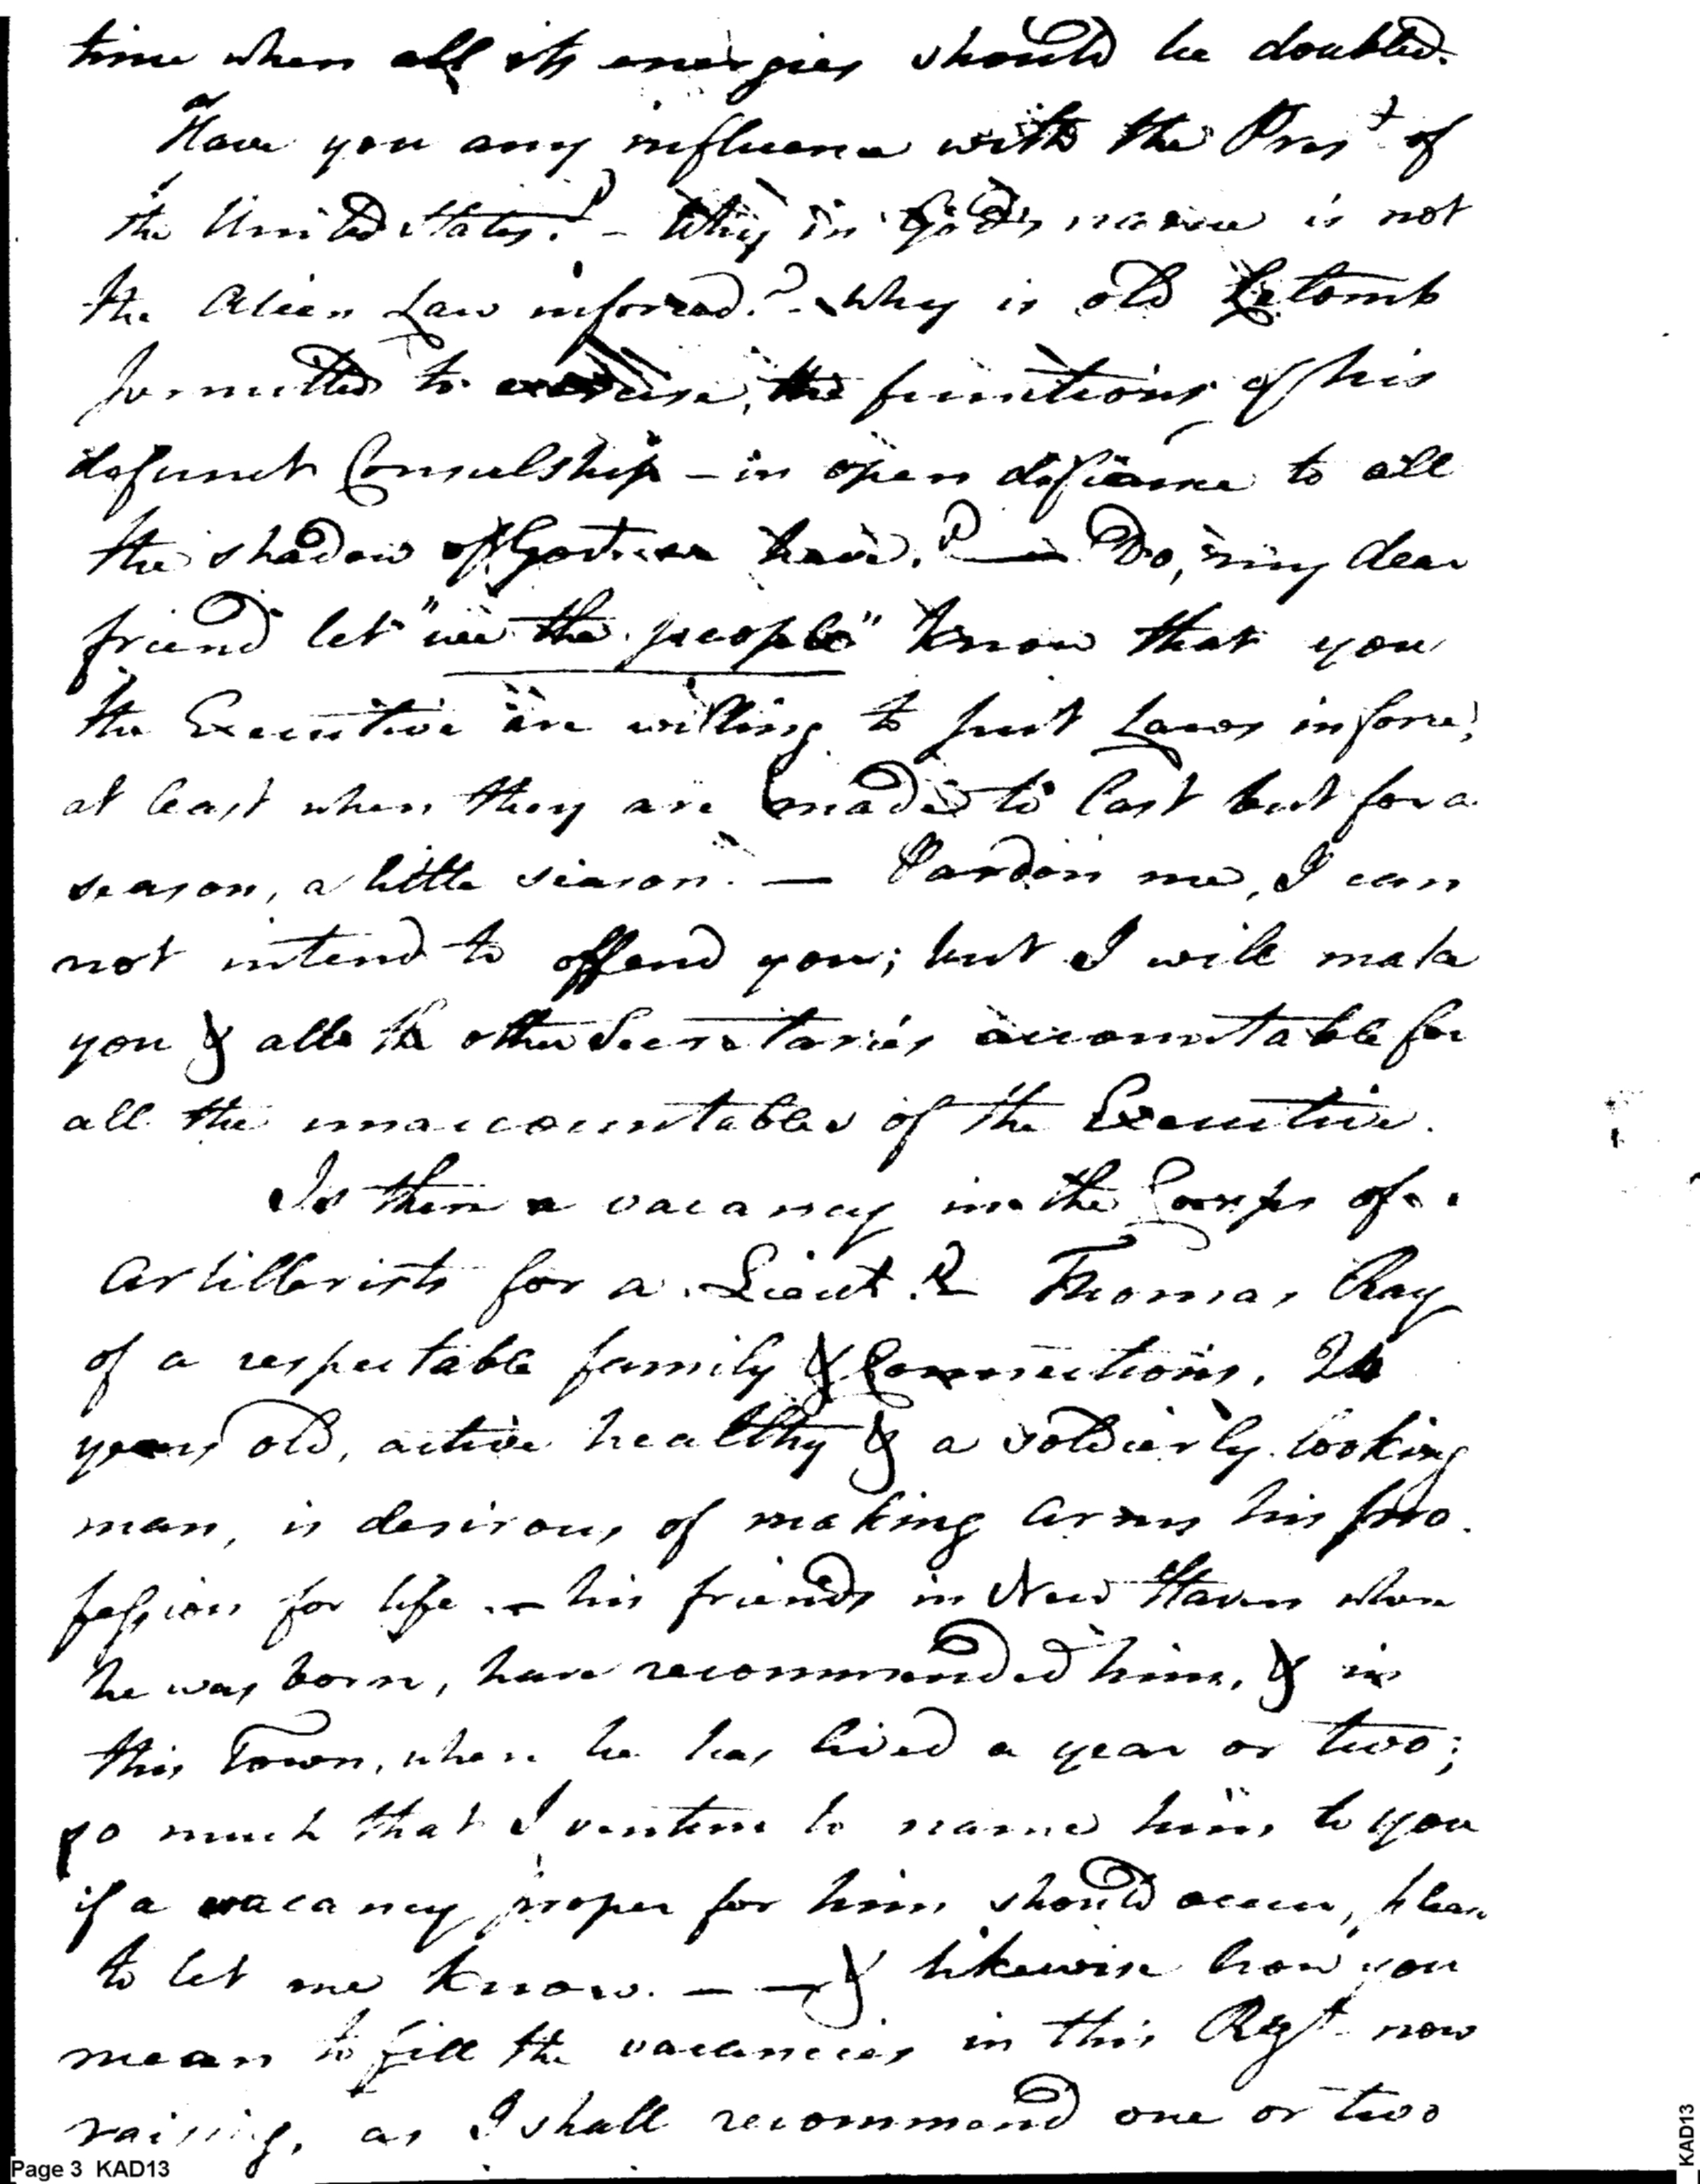 time when all its energies should be doubled.
Have you any influence with the Pres.t of
the United States? – Why in God's name is not
the Alien Law inforced? – Why is old Letomb
permitted to exercise, the functions of his
defunct Consulship – in open defiance to all
the shadow of Govt. we have? — Do, my dear
friend let "we the people" know that you
the Executive are willing to put Laws in force,
at least when they are made to last but for a
season, a little season. — Pardon me, I can
not intend to offend you; but I will make
you & all the other Secretaries accountable for
all the unaccountables of the Executive.
Is there a vacancy in the Corps of
Artillerists for a Lieut.? Thomas Ray
of a respectable family & Connections,
years old, active healthy & a soldierly looking
man, is desirous of making arms his pro
fession for life — his friends in New Haven where
he was born, have recommended him, & in
this Town, where he has lived a year or two;
so much that I venture to name him to you
if a vacancy proper for him should occur, please
to let me know. — — & likewise how you
mean to fill the vacancies in this Regt. now
raising, as I shall recommend one or two
Page 3 KAD13
KAD13